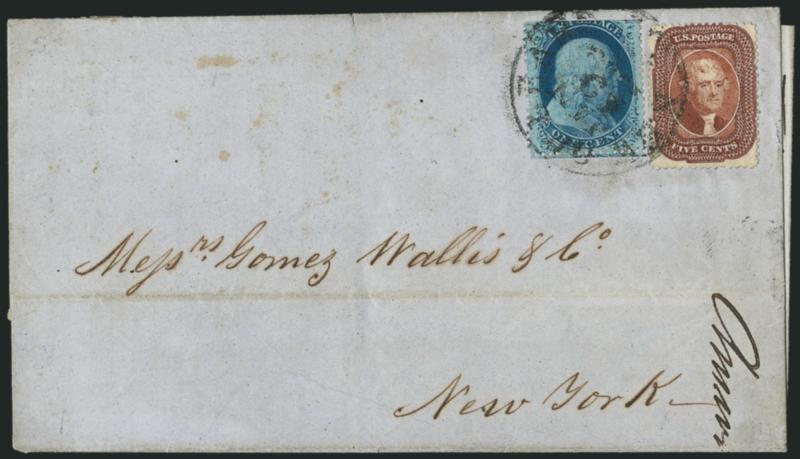 U.S. POSTAGE
FIVE CENTS
ONE CENT
Messrs Gomez Wallis & Co
New York